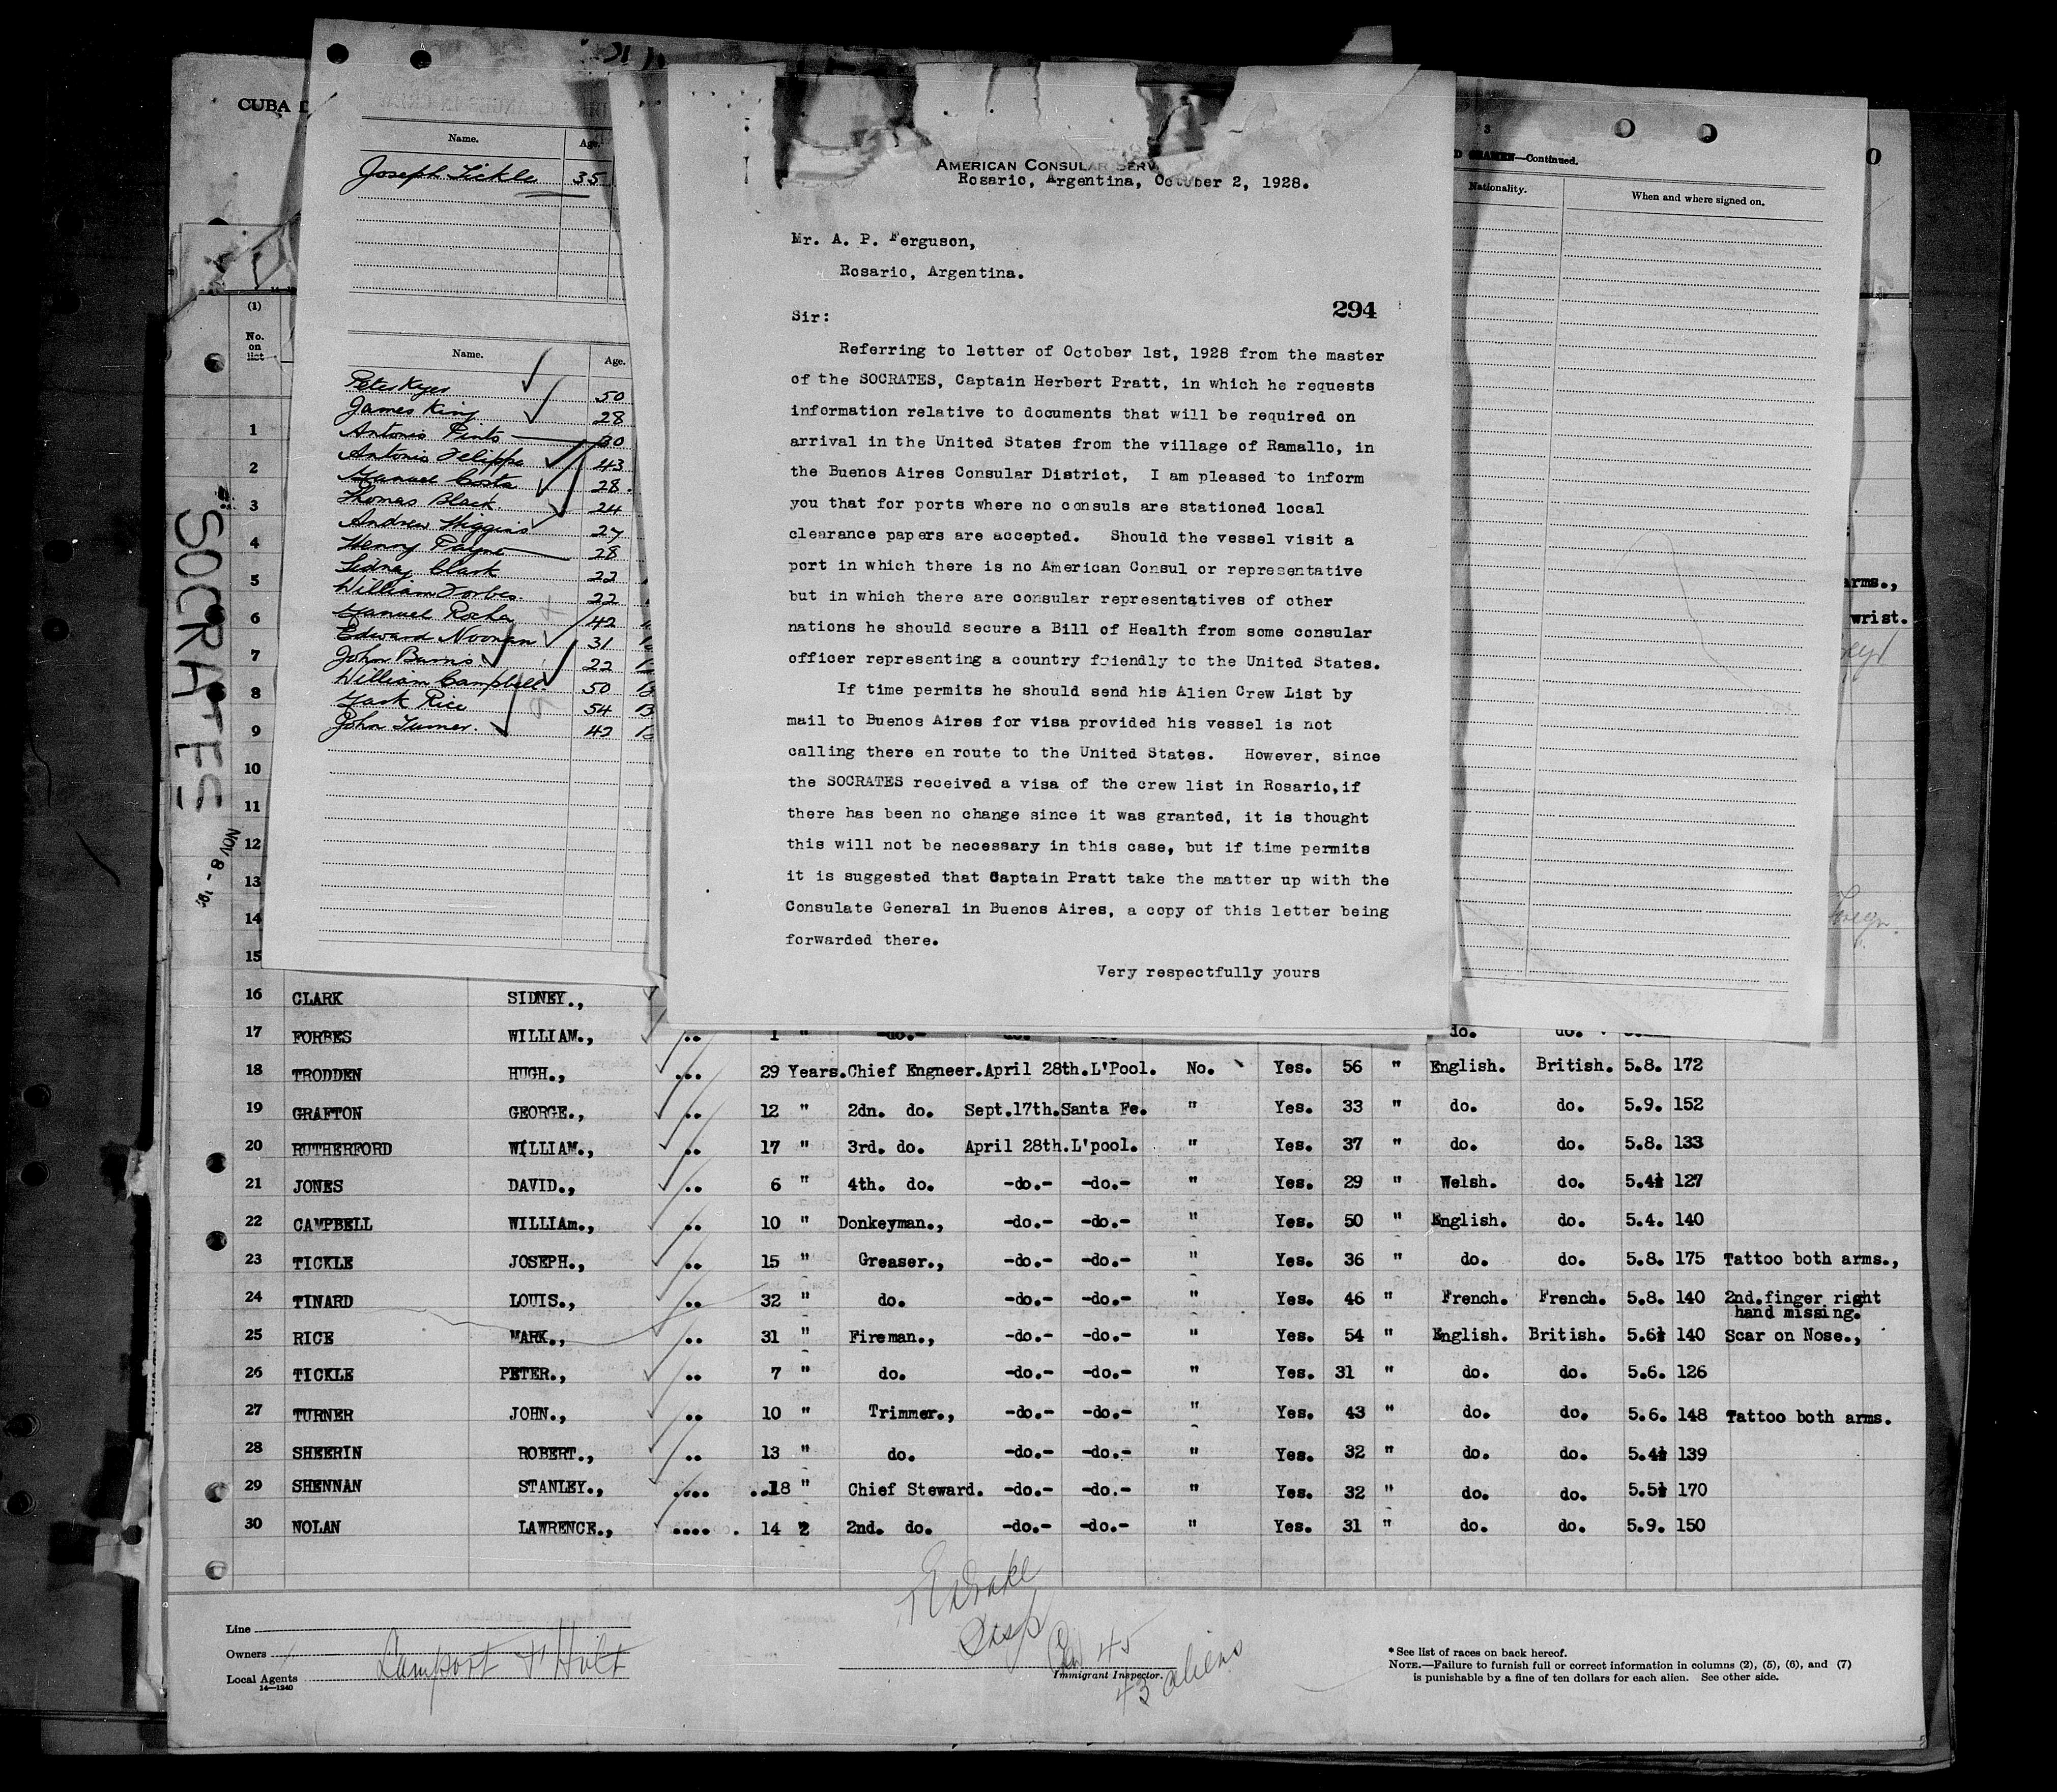 CUBA
Name. Age.
Joseph Tickle 35
Name. Age.
Peter Keyes 50
James King 28
Antonio Pinto 30
Antonio Felippe 43
Manuel Costa 28.
Thomas Black 24
Andrew Higgins 27
Henry Payne 28
Sidney Clark 22
William Forbes. 22
Manuel Rocha 42
Edward Noonan 31
John Burns. 22
William Campbell. 50
Mark Rice 54
John Turner. 42
AMERICAN CONSULAR SERV
Rosario, Argentina, October 2, 1928.
Mr. A. P. Ferguson,
Rosario, Argentina.
294
Sir:
Referring to letter of October 1st, 1928 from the master
of the SOCRATES, Captain Herbert Pratt, in which he requests
information relative to documents that will be required on
arrival in the United States from the village of Ramallo, in
the Buenos Aires Consular District, I am pleased to inform
you that for ports where no consuls are stationed local
clearance papers are accepted. Should the vessel visit a
port in which there is no American Consul or representative
but in which there are consular representatives of other
nations he should secure a Bill of Health from some consular
officer representing a country friendly to the United States.
If time permits he should send his Alien Crew List by
mail to Buenos Aires for visa provided his vessel is not
calling there en route to the United States. However, since
the SOCRATES received a visa of the crew list in Rosario,if
there has been no change since it was granted, it is thought
this will not be necessary in this case, but if time permits
it is suggested that Captain Pratt take the matter up with the
Consulate General in Buenos Aires, a copy of this letter being
forwarded there.
Very respectfully yours
3
—Continued.
Nationality. When and where signed on.
arms.,
wrist.
"SOCRATES
NOV 8 - 19
(1)
No.
on
list
1
2
3
4
5
6
7
8
9
10
11
12
13
14
15
16 CLARK SIDNEY.,
17 FORBES WILLIAM., 1 " -do.- do. do.
18 TRODDEN HUGH., 29 Years. Chief Engneer. April 28th. L'Pool. No. Yes. 56 " English. British. 5.8. 172
19 GRAFTON GEORGE., 12 " 2dn. do. Sept.17th. Santa Fe. " Yes. 33 " do. do. 5.9. 152
20 RUTHERFORD WILLIAM., 17 " 3rd. do. April 28th. L'pool. " Yes. 37 " do. do. 5.8. 133
21 JONES DAVID., 6 " 4th. do. -do.- -do.- " Yes. 29 " Welsh. do. 5.4½ 127
22 CAMPBELL WILLIAm., 10 " Donkeyman., -do.- -do.- " Yes. 50 " English. do. 5.4. 140
23 TICKLE JOSEPH., 15 " Greaser., -do.- -do.- " Yes. 36 " do. do. 5.8. 175 Tattoo both arms.,
24 TINARD LOUIS., 32 " do. -do.- -do.- " Yes. 46 " French. French. 5.8. 140 2nd.finger right
hand missing.
25 RICE MARK., 31 " Fireman., -do.- -do.- " Yes. 54 " English. British. 5.6½ 140 Scar on Nose.,
26 TICKLE PETER., 7 " do. -do.- -do.- " Yes. 31 " do. do. 5.6. 126
27 TURNER JOHN., 10 " Trimmer., -do.- -do.- " Yes. 43 " do. do. 5.6. 148 Tattoo both arms.
28 SHEERIN ROBERT., 13 " do. -do.- -do.- " Yes. 32 " do. do. 5.4½ 139
29 SHENNAN STANLEY., 18 " Chief Steward. -do.- -do.- " Yes. 32 " do. do. 5.5½ 170
30 NOLAN LAWRENCE., 14 2 2nd. do. -do.- -do.- " Yes. 31 " do. do. 5.9. 150
Drake
Insp
45
43 aliens
Line
Owners
Local Agents Lamport & Holt
14—1240
Immigrant Inspector.
* See list of races on back hereof.
NOTE.—Failure to furnish full or correct information in columns (2), (5), (6), and (7)
is punishable by a fine of ten dollars for each alien. See other side.